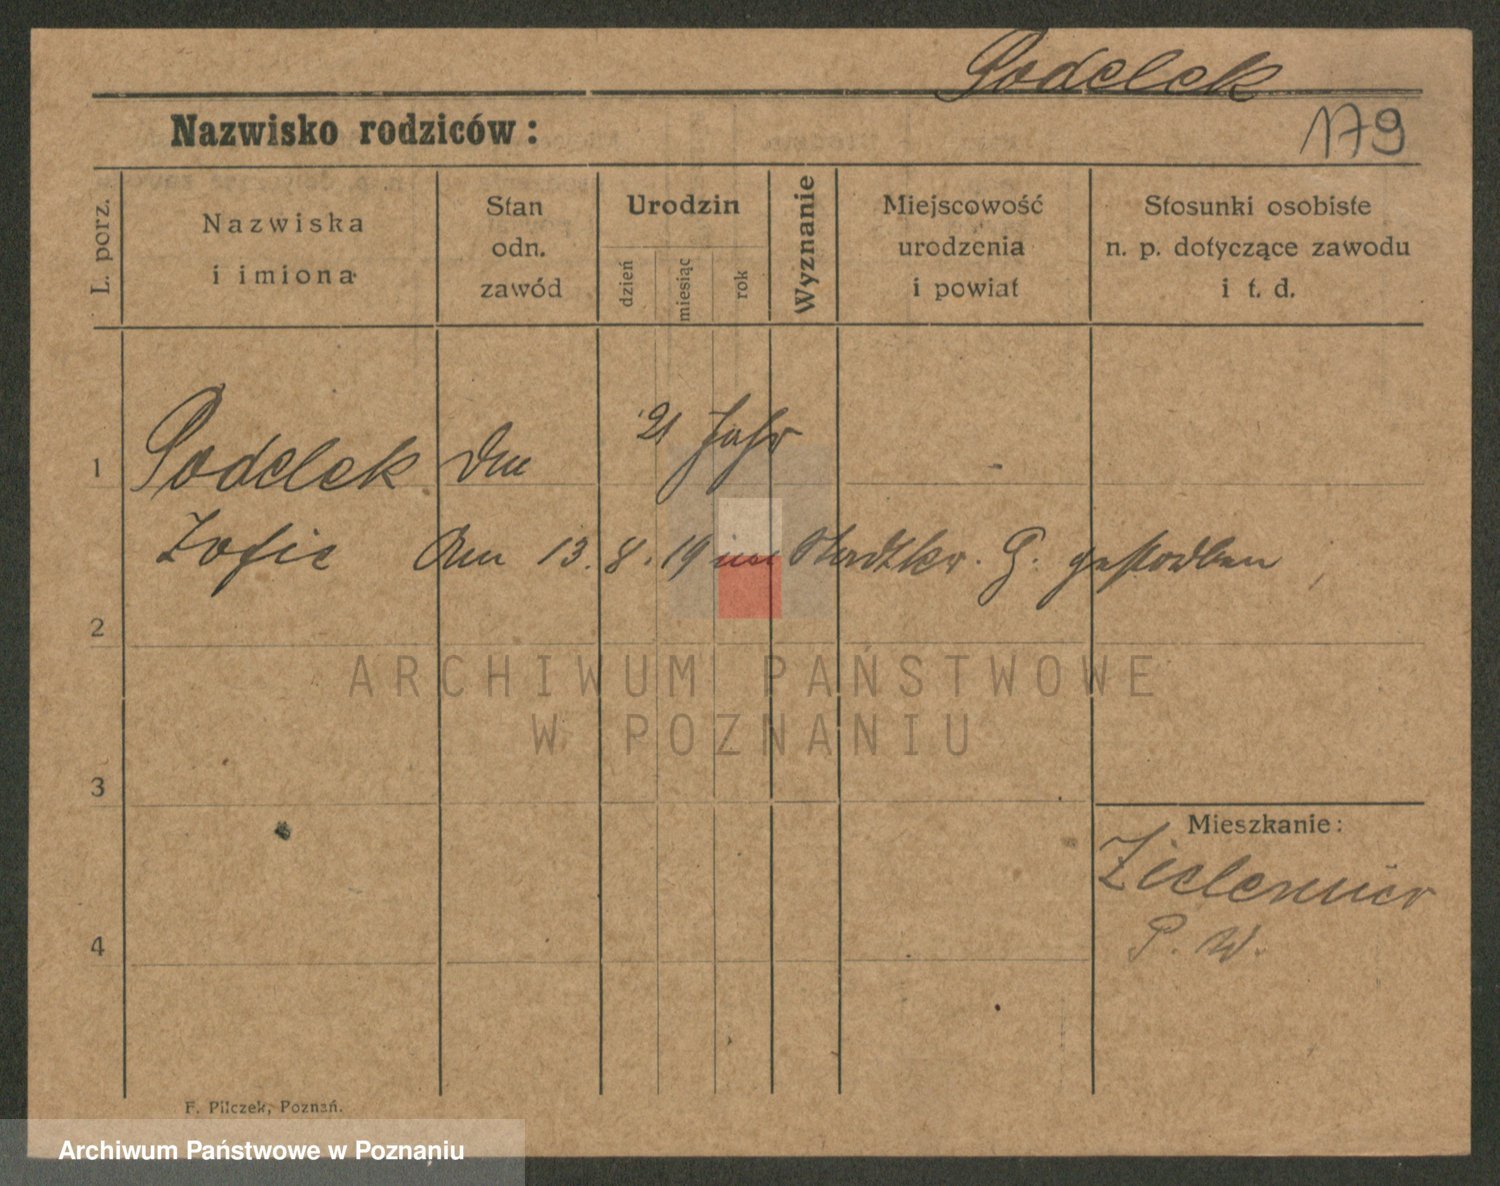 Podelek
179
Nazwisko rodziców:
L. porz.
Nazwiska
i imiona
Stan
odn.
zawód
Urodzin
dzień
miesiąc
rok
Wyznanie
Miejscowość
urodzenia
i powiat
Stosunki osobiste
n. p. dotyczące zawodu
i t. d.
1
Podelek
21 Jahr
Zofie
13.8.19 Stadtkr. G. gestorben
2
ARCHIWUM PAŃSTWOWE
W POZNANIU
3
Mieszkanie:
4
P. W.
F. Pilczek, Poznań.
Archiwum Państwowe w Poznaniu